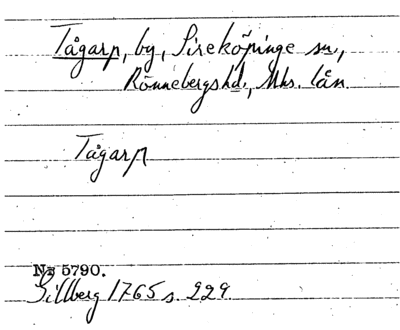 Tågarp, by, Sireköpinge sn.,
Rönnebergs hd., Mhs. län.
Tågarp
No 5790.
Gillberg 1765 s. 229.